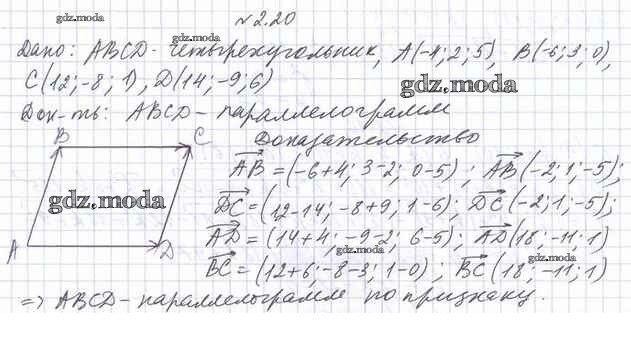 gdz.moda
№2.20
gdz.moda
Дано: ABCD - четырехугольник, A(-4; 2; 5), B(-6; 3; 0),
C(12; -8; 1), D(14; -9; 6)
gdz.moda
Док-ть: ABCD - параллелограмм
B C Доказательство
AB = (-6+4; 3-2; 0-5); AB(-2; 1; -5);
gdz.moda
DC = (12-14; -8+9; 1-6); DC(-2; 1; -5);
AD = (14+4; -9-2; 6-5); AD(18; -11; 1)
A D
gdz.moda
gdz.moda
BC = (12+6; -8-3; 1-0); BC(18; -11; 1)
=> ABCD - параллелограмм по признаку.